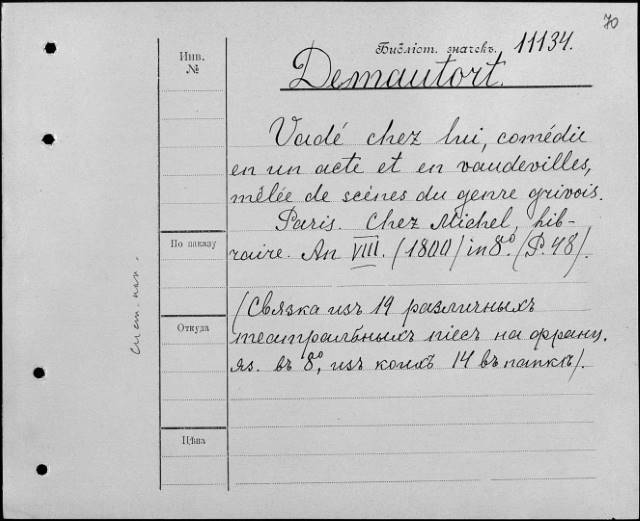 70
Библіот. значекъ. 11134.
Инв.
№
Demautort.
Vadé chez lui, comédie
en un acte et en vaudevilles,
mêlée de scènes du genre grivois.
Paris. Chez Michel, lib-
raire. An VIII. (1800) in 8º. (P. 48).
По шкафу
(Связка изъ 19 различныхъ
театральныхъ піесъ на франц.
Откуда
яз. въ 8º, изъ коихъ 14 въ папкѣ).
Цѣна